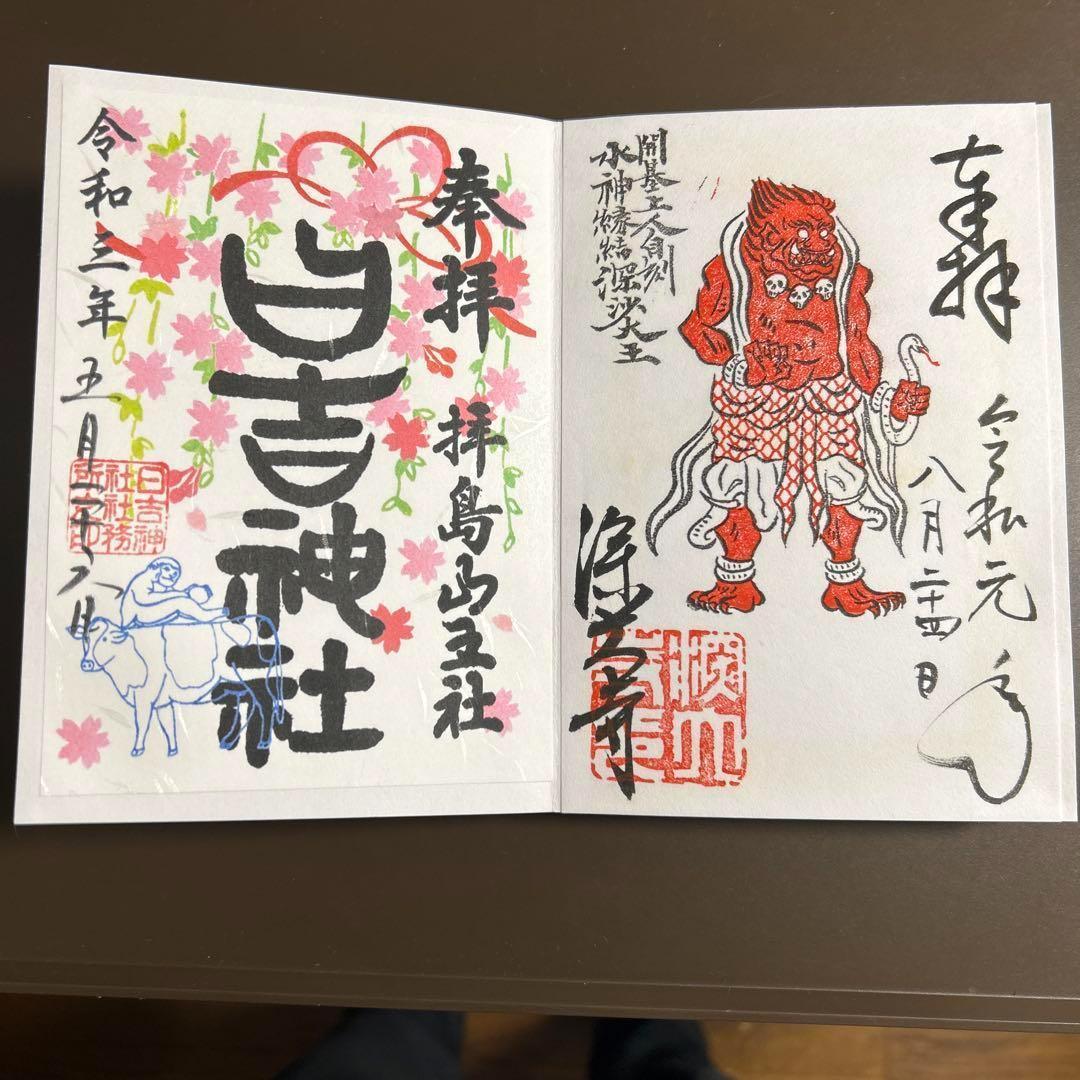 奉拝
拝島山王社
日吉神社
令和三年五月二十八日
日吉神
社社務
所之印
奉拝
令和元年
八月二十四日
開基上人自刻
水神縁結深沙大王
深大寺